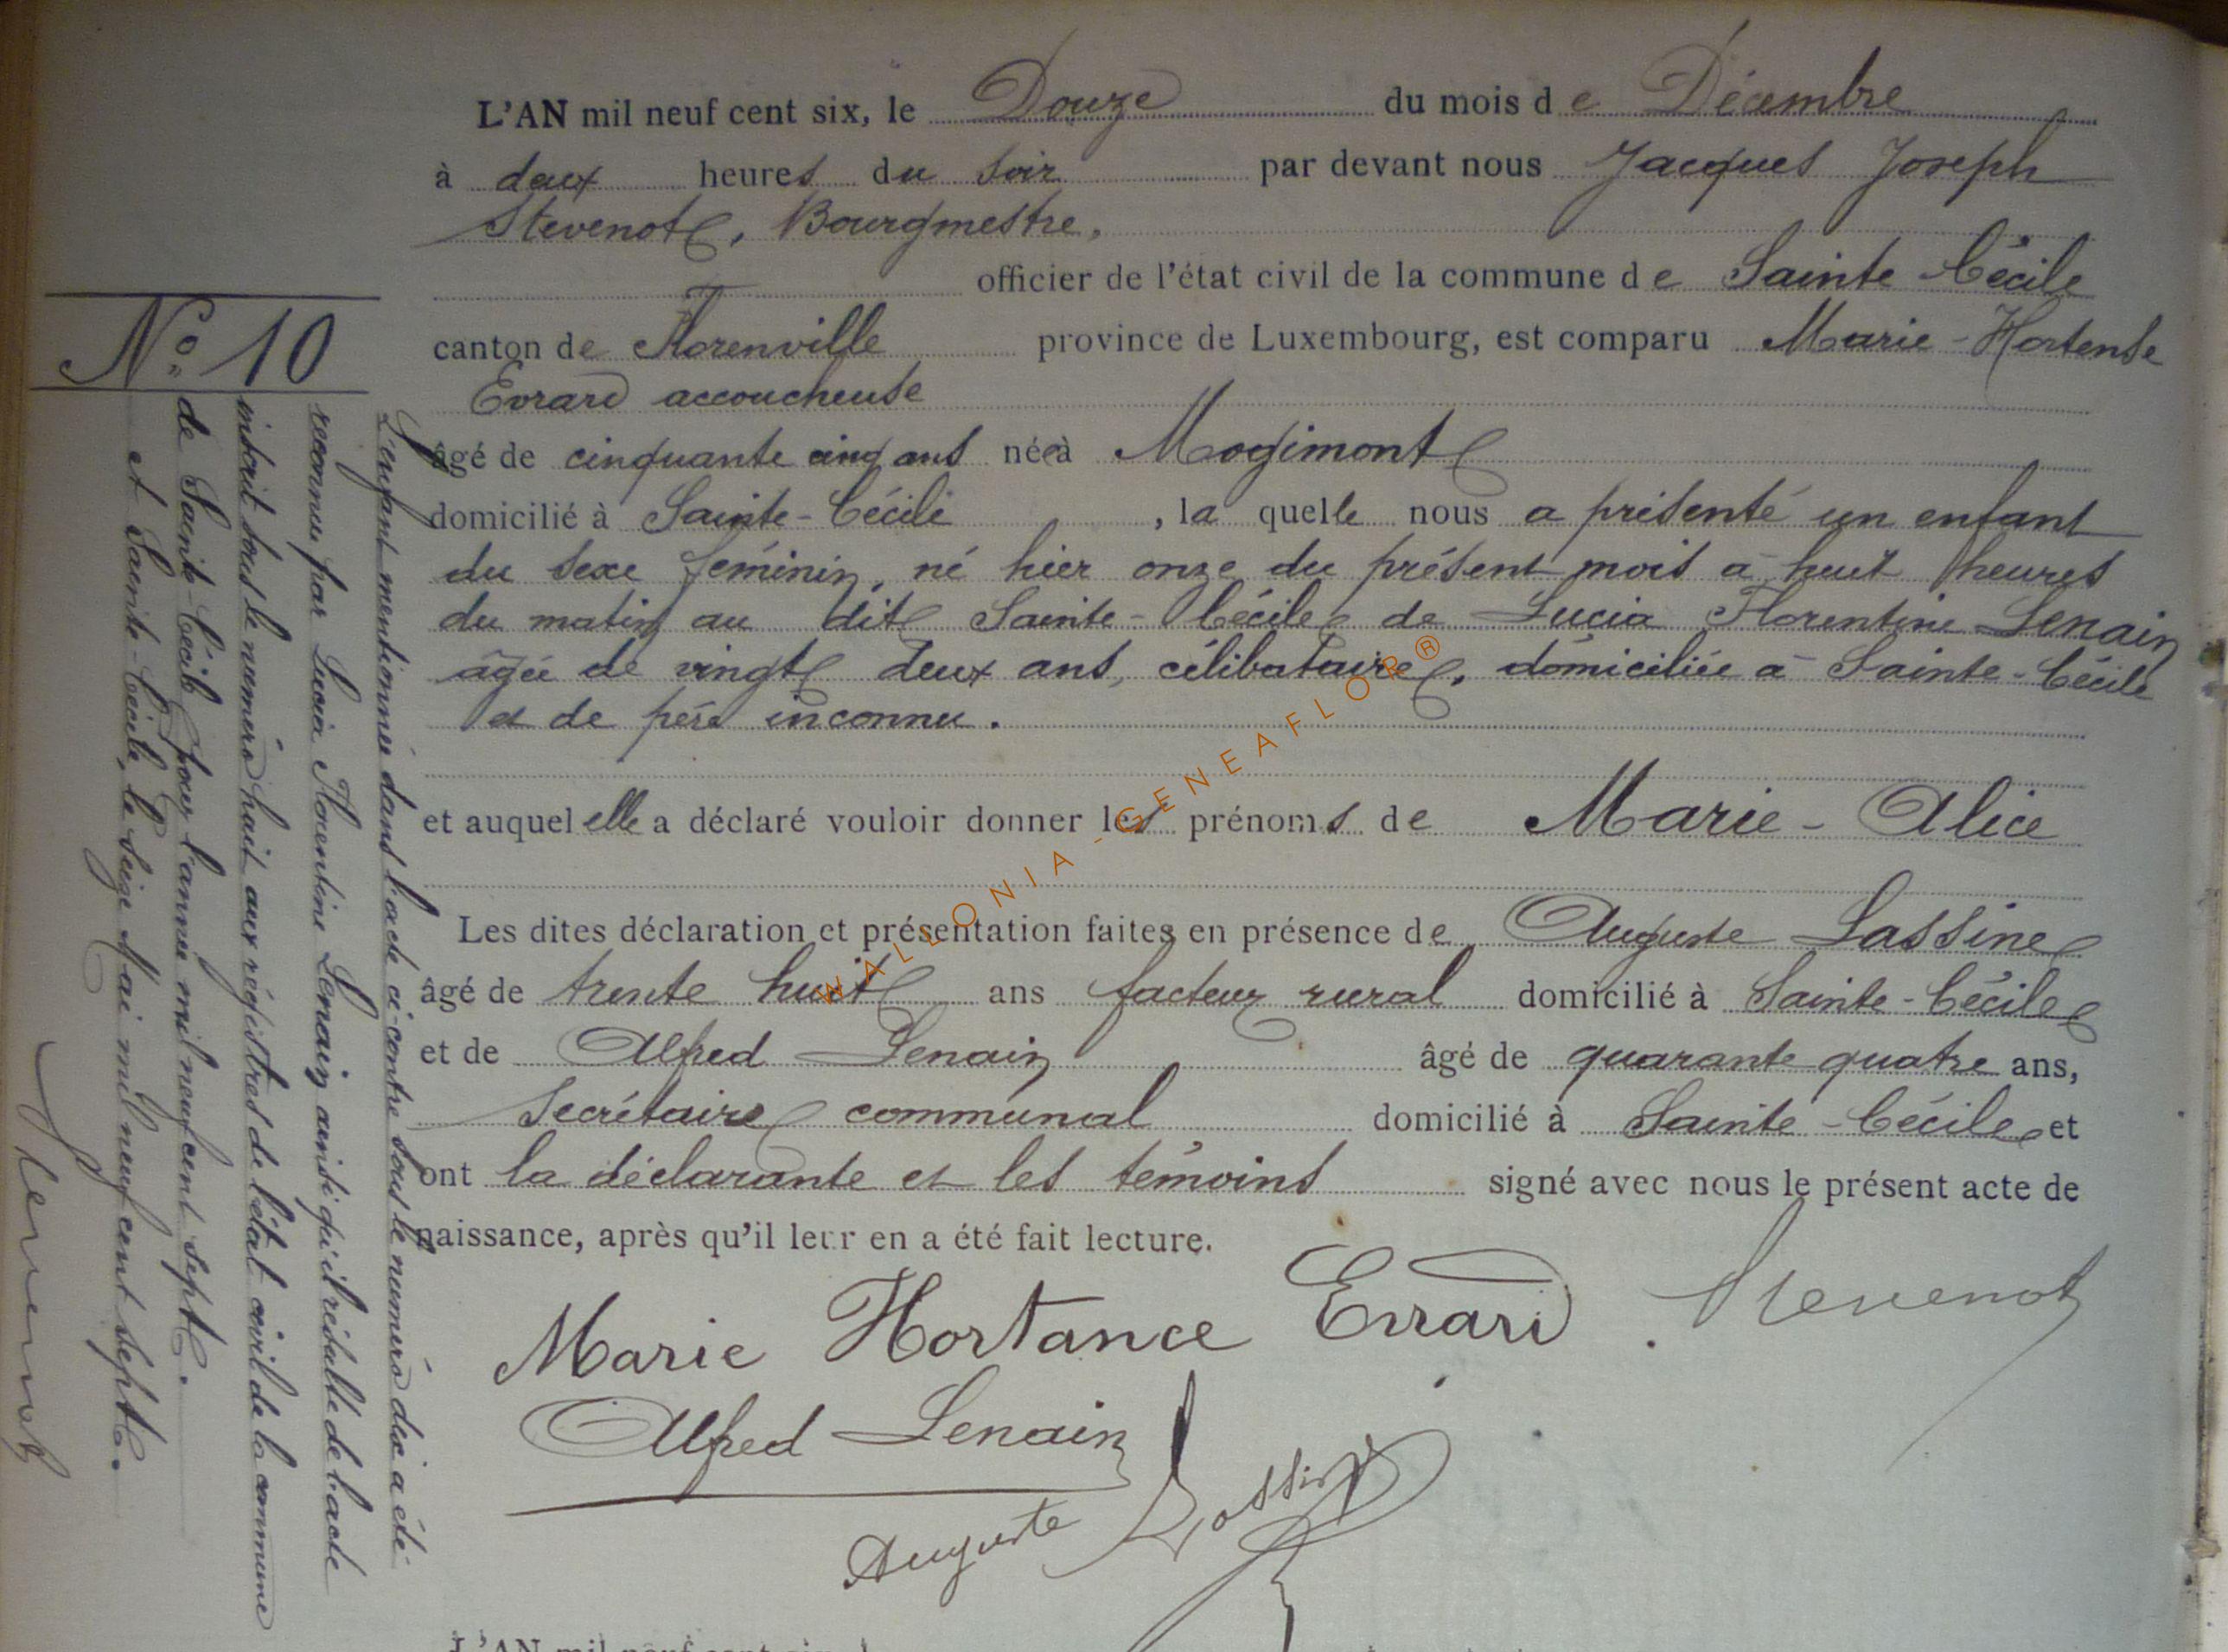 L'AN mil neuf cent six, le Douze du mois de Décembre
à deux heures du soir par devant nous Jacques Joseph
Stevenot, Bourgmestre,
officier de l'état civil de la commune de Sainte Cécile
canton de Florenville province de Luxembourg, est comparu Marie-Hortense
Evrard accoucheuse
âgé de cinquante cinq ans née à Mogimont
domicilié à Sainte-Cécile, la quelle nous a présenté un enfant
du sexe féminin, né hier onze du présent mois à huit heures
du matin au dit Sainte-Cécile de Lucia Florentine Lenain
âgée de vingt deux ans, célibataire, domiciliée à Sainte-Cécile
et de père inconnu.
et auquel elle a déclaré vouloir donner les prénoms de Marie-Alice
Les dites déclaration et présentation faites en présence de Auguste Lassine
âgé de trente huit ans facteur rural domicilié à Sainte-Cécile
et de Alfred Lenain âgé de quarante quatre ans,
Secrétaire communal domicilié à Sainte-Cécile et
ont la déclarante et les témoins signé avec nous le présent acte de
naissance, après qu'il leur en a été fait lecture.
Marie Hortance Evrard. Stevenot
Alfred Lenain
Auguste Lassine
No 10
L'enfant mentionnée dans l'acte ci-contre sous le numéro dix a été
reconnue par Lucia Florentine Lenain ainsi qu'il résulte de l'acte
inscrit sous le numéro huit aux régistres de l'état civil de la commune
de Sainte-Cécile pour l'année mil neuf cent sept.
et Sainte-Cécile, le seize Mai mil neuf cent sept.
Stevenot
WALLONIA-GENEAFLOR®
L'AN mil neuf cent six, l